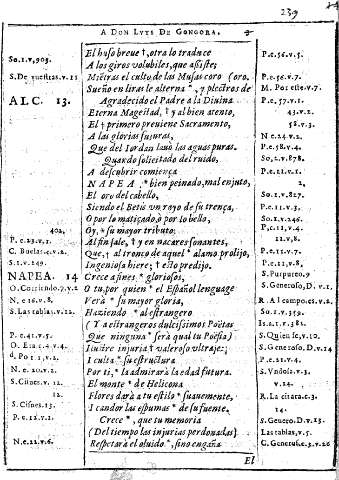 239
A DON LUYS DE GONGORA.
El huso breue †, otra lo traduce
So.1.v,903. P.c.56.v.5.
A los giros volubiles, que assiste;
P.e.v.7.
S.De v.11 Mientras el culto, de las Musas coro (oro.
Sueño en liras le alterna *, y plectros de M. Por este.v.7.
ALC. 13. Agradecido el Padre a la Diuina P.c.57.v.1
Eterna Magestad, † y al bien atento, 43.v.2
El † primero preuiene Sacramento, 58.v.3.
A las glorias futuras, N.e.24.v.2.
Que del Iordan lauò las aguas puras. P.c.58.v.4
Quando solicitado del ruido, So,2.v.878.
A descubrir comiença P.c.21.v.1.
NAPEA, * bien peinado, mal enjuto, 2,
El oro del cabello, So.1.v.827.
Siendo el Betis un rayo de su trença, P.c.11.v.3.
O por lo matizado, ò por lo bello, So.1.v.246.
402, Oy, * su mayor tributo: P.c.11,v.4
P.c.33.v.1. Al fin sale, † y en nacares sonantes, 12.v,8
C. Buelas.e.v.2. Que, † al tronco de aquel * alamo prolijo, P.c.12.v.7.
S.1.v.249. Ingeniosa hiere; † esto predijo. P.c.12.v.8.
NAPEA. 14 Crece a fines * gloriosos, S. Purpureo.9
O. Corriendo.7.v.2 O tu, por quien * el Español lenguage S. Generoso, D.v.1.
N.e 16.v.8, Verà * su mayor gloria, R. Al campo.es.v.2.
S. Las tablas.v.12. Haziendo * al estrangero So.1.v.359.
(Y a estrangeros dulcissimos Poëtas Is.2.v.381.
P.c.41.v.5. Que ninguna * serà qual tu Poësia) S. Quien se,v.10.
O. Era 1.4.v.4. Ilustre injuria † valeroso vltraje; S. Generoso, D.v.14
d. Po 11,v.2. I culta * su estructura P.c.21.v.4.
N.e.20.v.2. Por ti, * la admirarà la edad futura. S. Vndosi.v.13.
S. Cisnes.v.12. El monte * de Helicona v.14.
12. Flores darà a tu estilo * suauemente, R. La citara c.3.
S. Cisnes.13. I candor las espumas * de su fuente. v.14.
P.c.12.v.1. Crece *, que tu memoria S. Genero.D.v.13
(Del tiempo las injurias perdonadas) Las tablas,v.5.
N.e.22.v.6. Respetarà el oluido *, sino engaña C. Generos.e.3.v.26
El